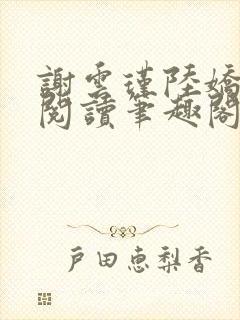 謝雲瑾陸嬌
閱讀筆趣閣
戸田恵梨香